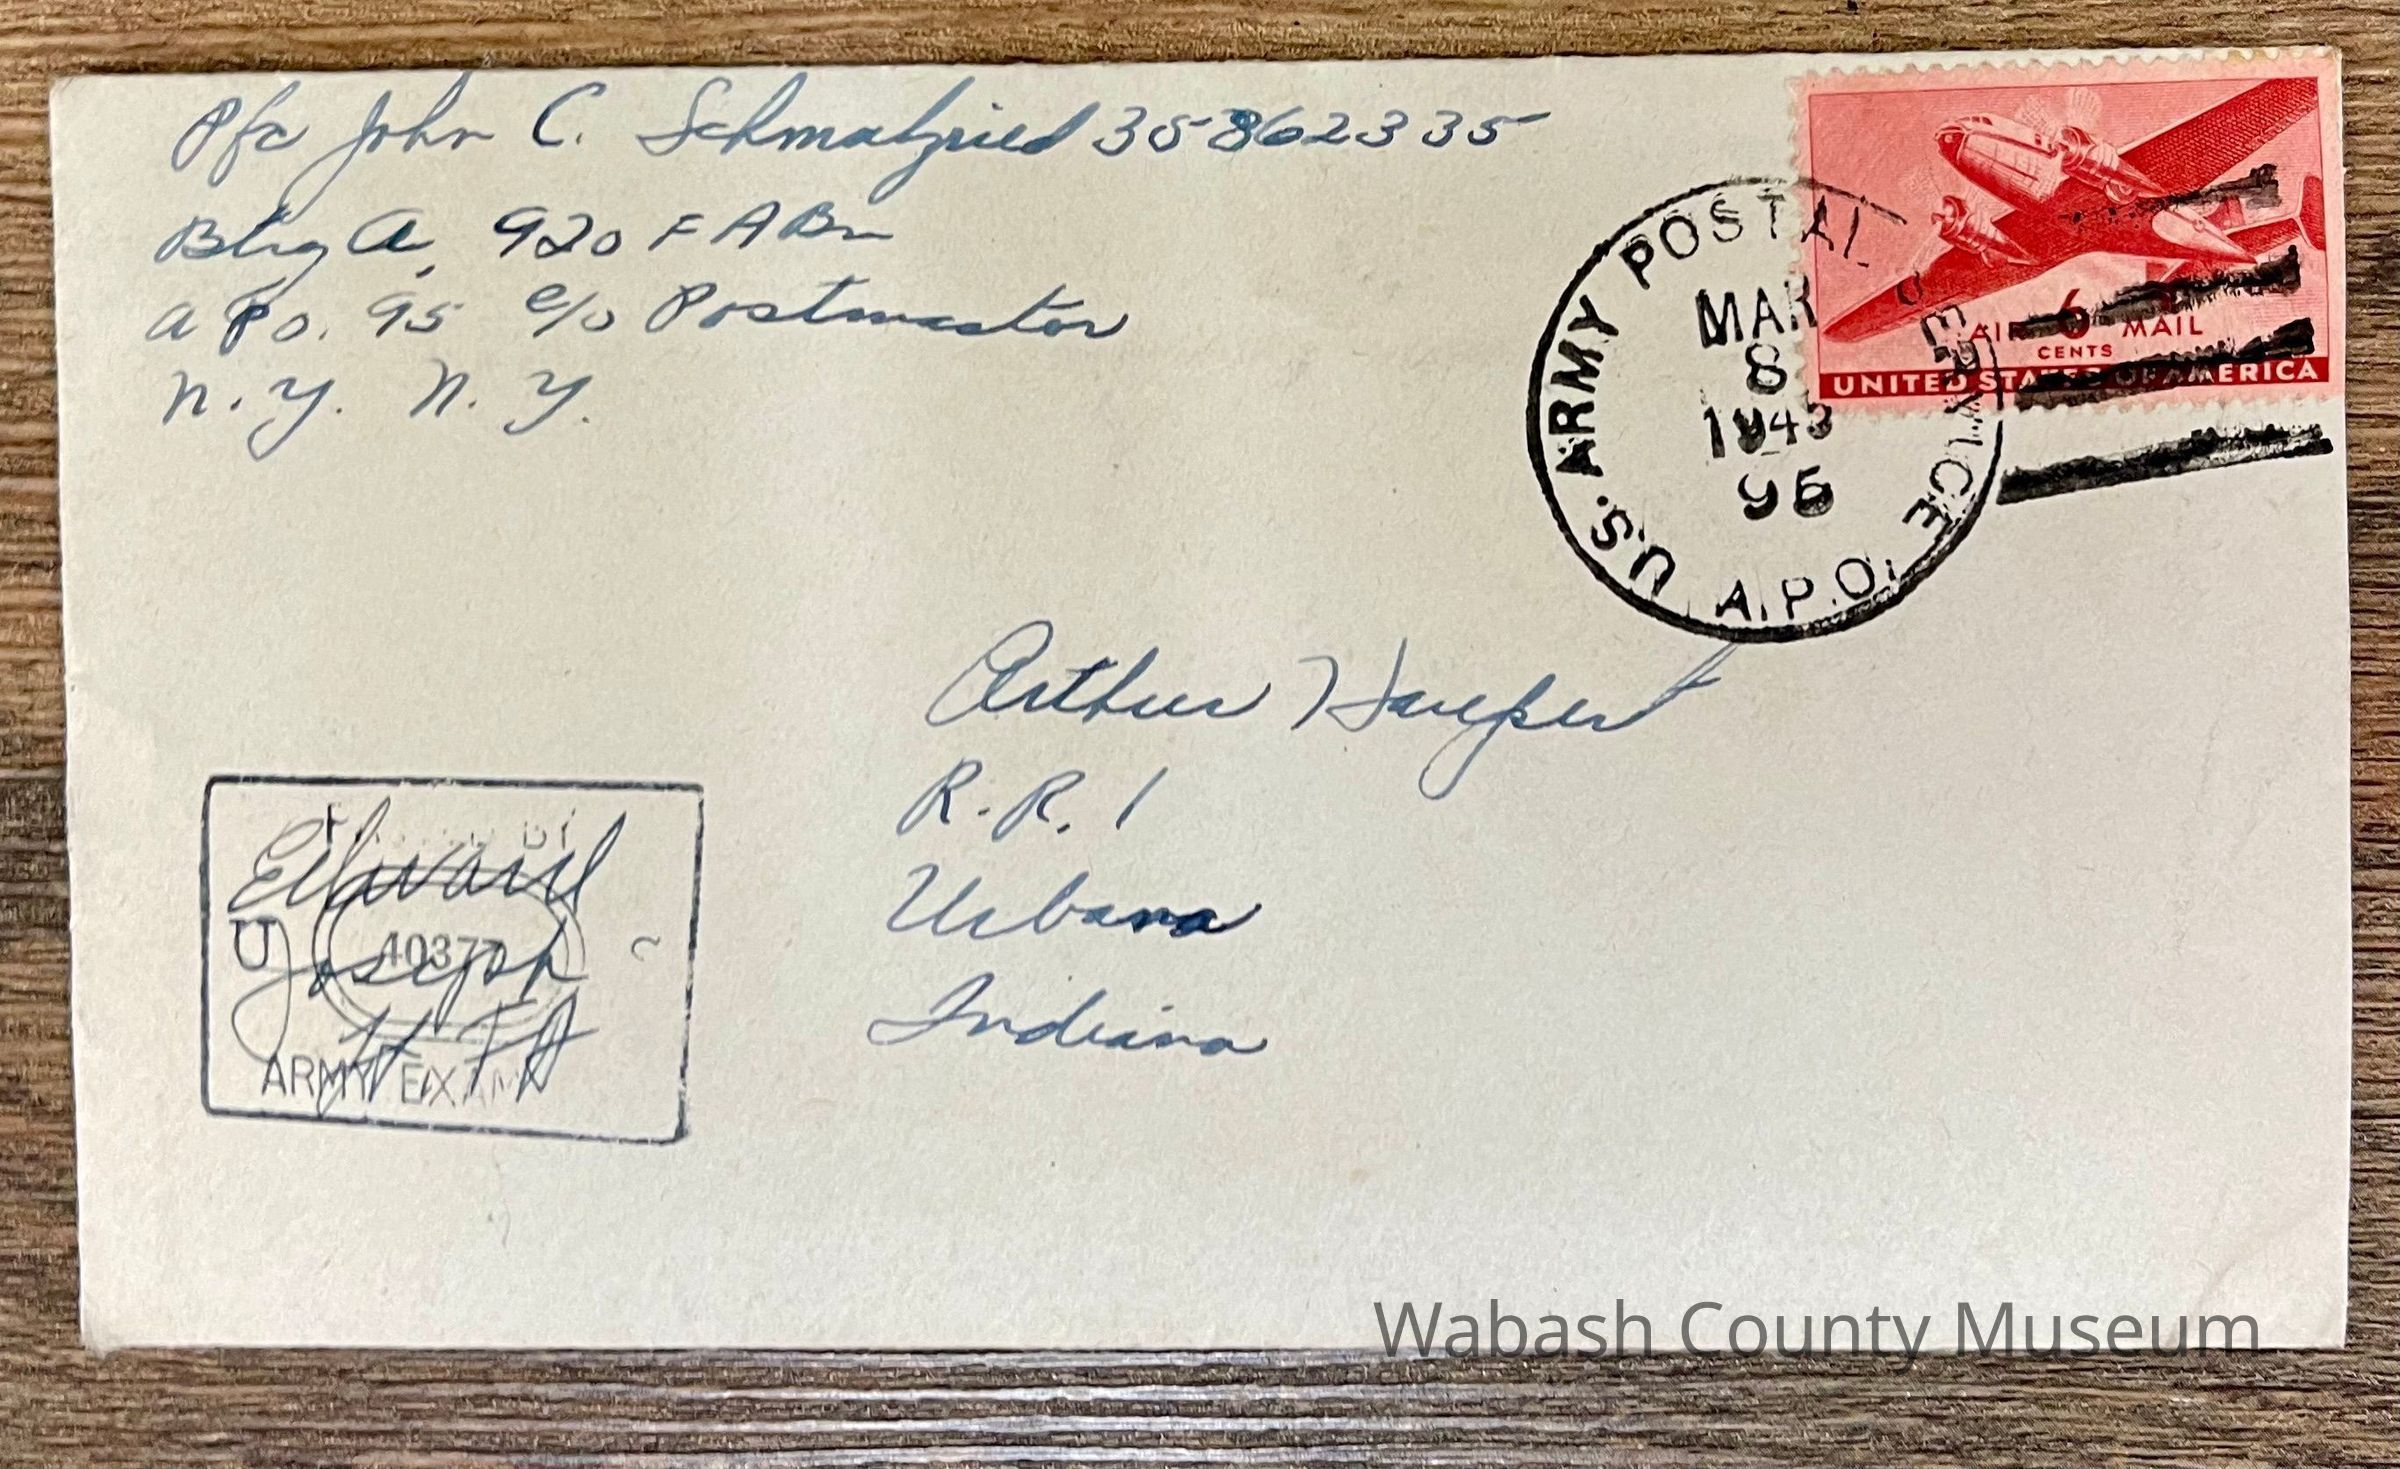 Pfc John C. Schmalzried 35862335
Btry A, 920 F A Bn
A P O. 95 c/o Postmaster
N. Y. N. Y.
U.S. ARMY POSTAL SERVICE
MAR
8
1945
95
A.P.O.
AIR 6 MAIL
CENTS
UNITED STATES OF AMERICA
Arthur Haupert
R. R. 1
Urbana
Indiana
BY
Edward
40377
Joseph
ARMY EXAM
Wabash County Museum